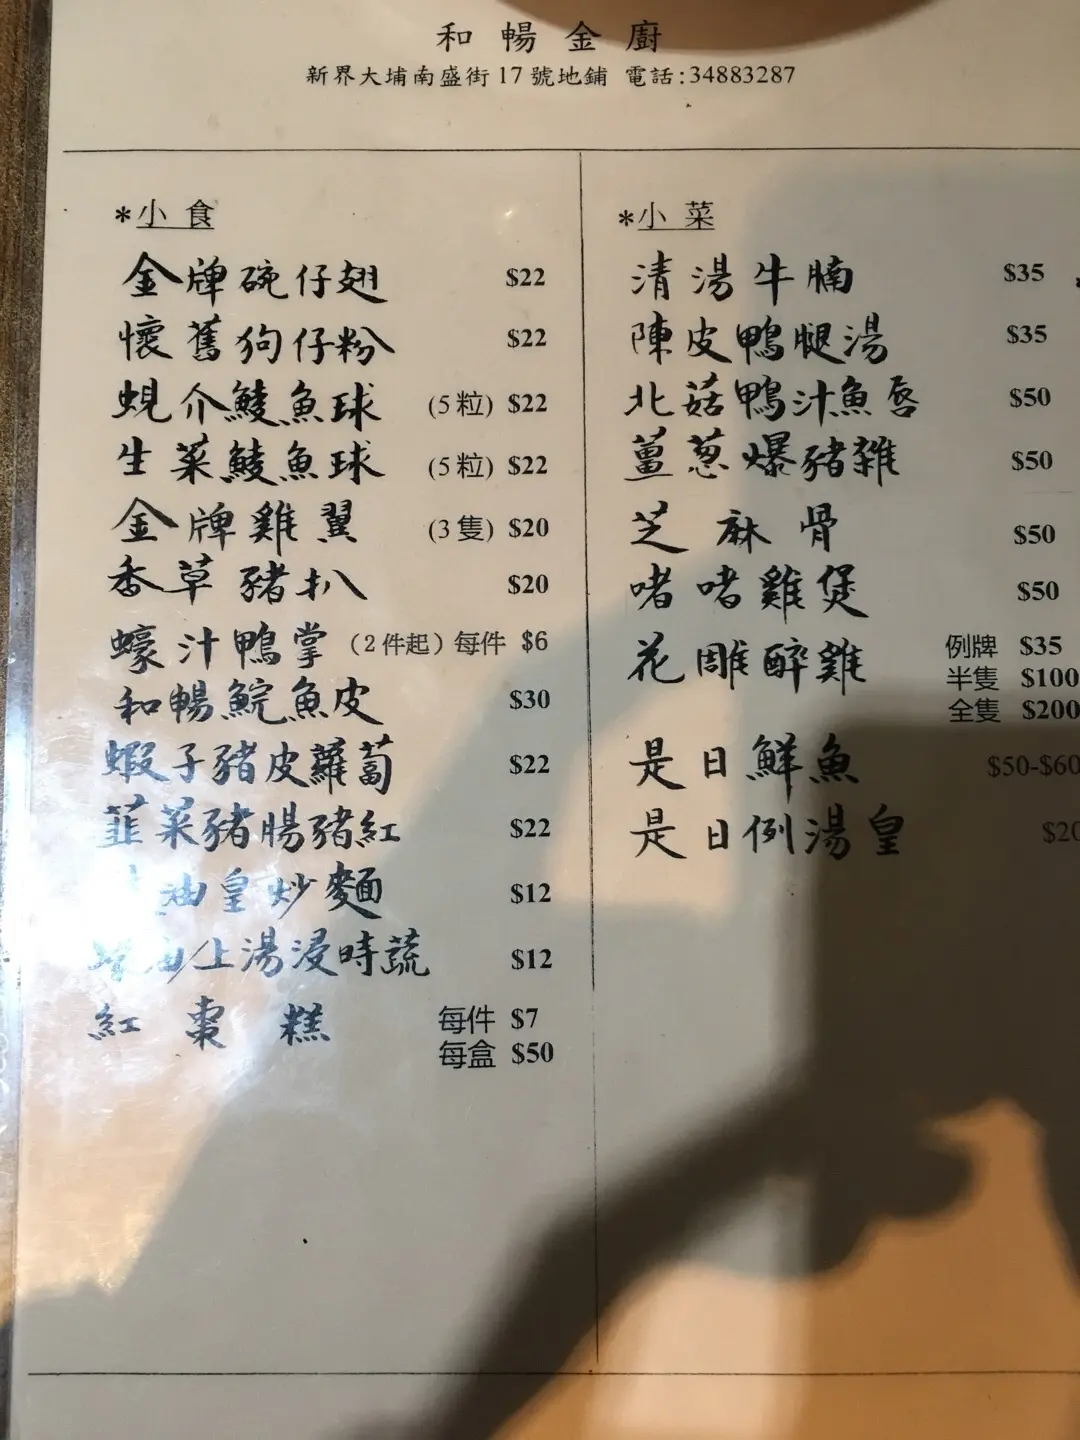 和暢金廚
新界大埔南盛街17號地鋪 電話:34883287
*小食
金牌碗仔翅 $22
懷舊狗仔粉 $22
蜆介鯪魚球 (5粒) $22
生菜鯪魚球 (5粒) $22
金牌雞翼 (3隻) $20
香草豬扒 $20
蠔汁鴨掌 (2件起)每件 $6
和暢鯇魚皮 $30
蝦子豬皮蘿蔔 $22
韮菜豬腸豬紅 $22
油皇炒麵 $12
油/上湯浸時蔬 $12
紅棗糕 每件 $7
每盒 $50
*小菜
清湯牛腩 $35
陳皮鴨腿湯 $35
北菇鴨汁魚唇 $50
薑葱爆豬雜 $50
芝麻骨 $50
啫啫雞煲 $50
花雕醉雞 例牌 $35
半隻 $100
全隻 $200
是日鮮魚 $50-$60
是日例湯皇 $20